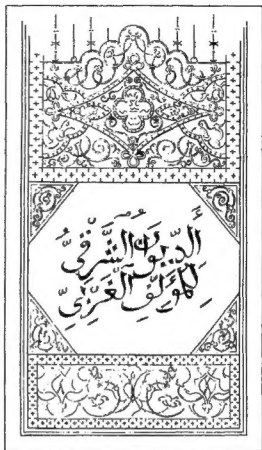 الدّيوان الشَّرقيُّ
للمؤلّف الغَربيّ